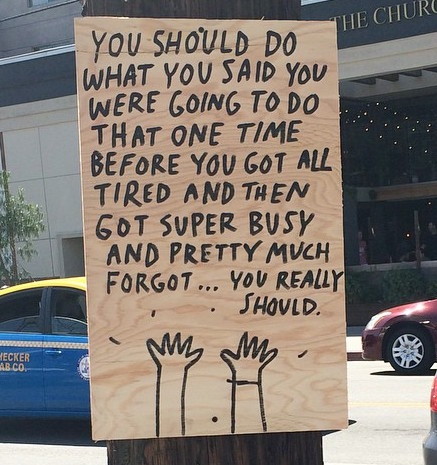 YOU SHOULD DO
WHAT YOU SAID YOU
WERE GOING TO DO
THAT ONE TIME
BEFORE YOU GOT ALL
TIRED AND THEN
GOT SUPER BUSY
AND PRETTY MUCH
FORGOT... YOU REALLY
SHOULD.
THE CHURC
HECKER
AB CO.